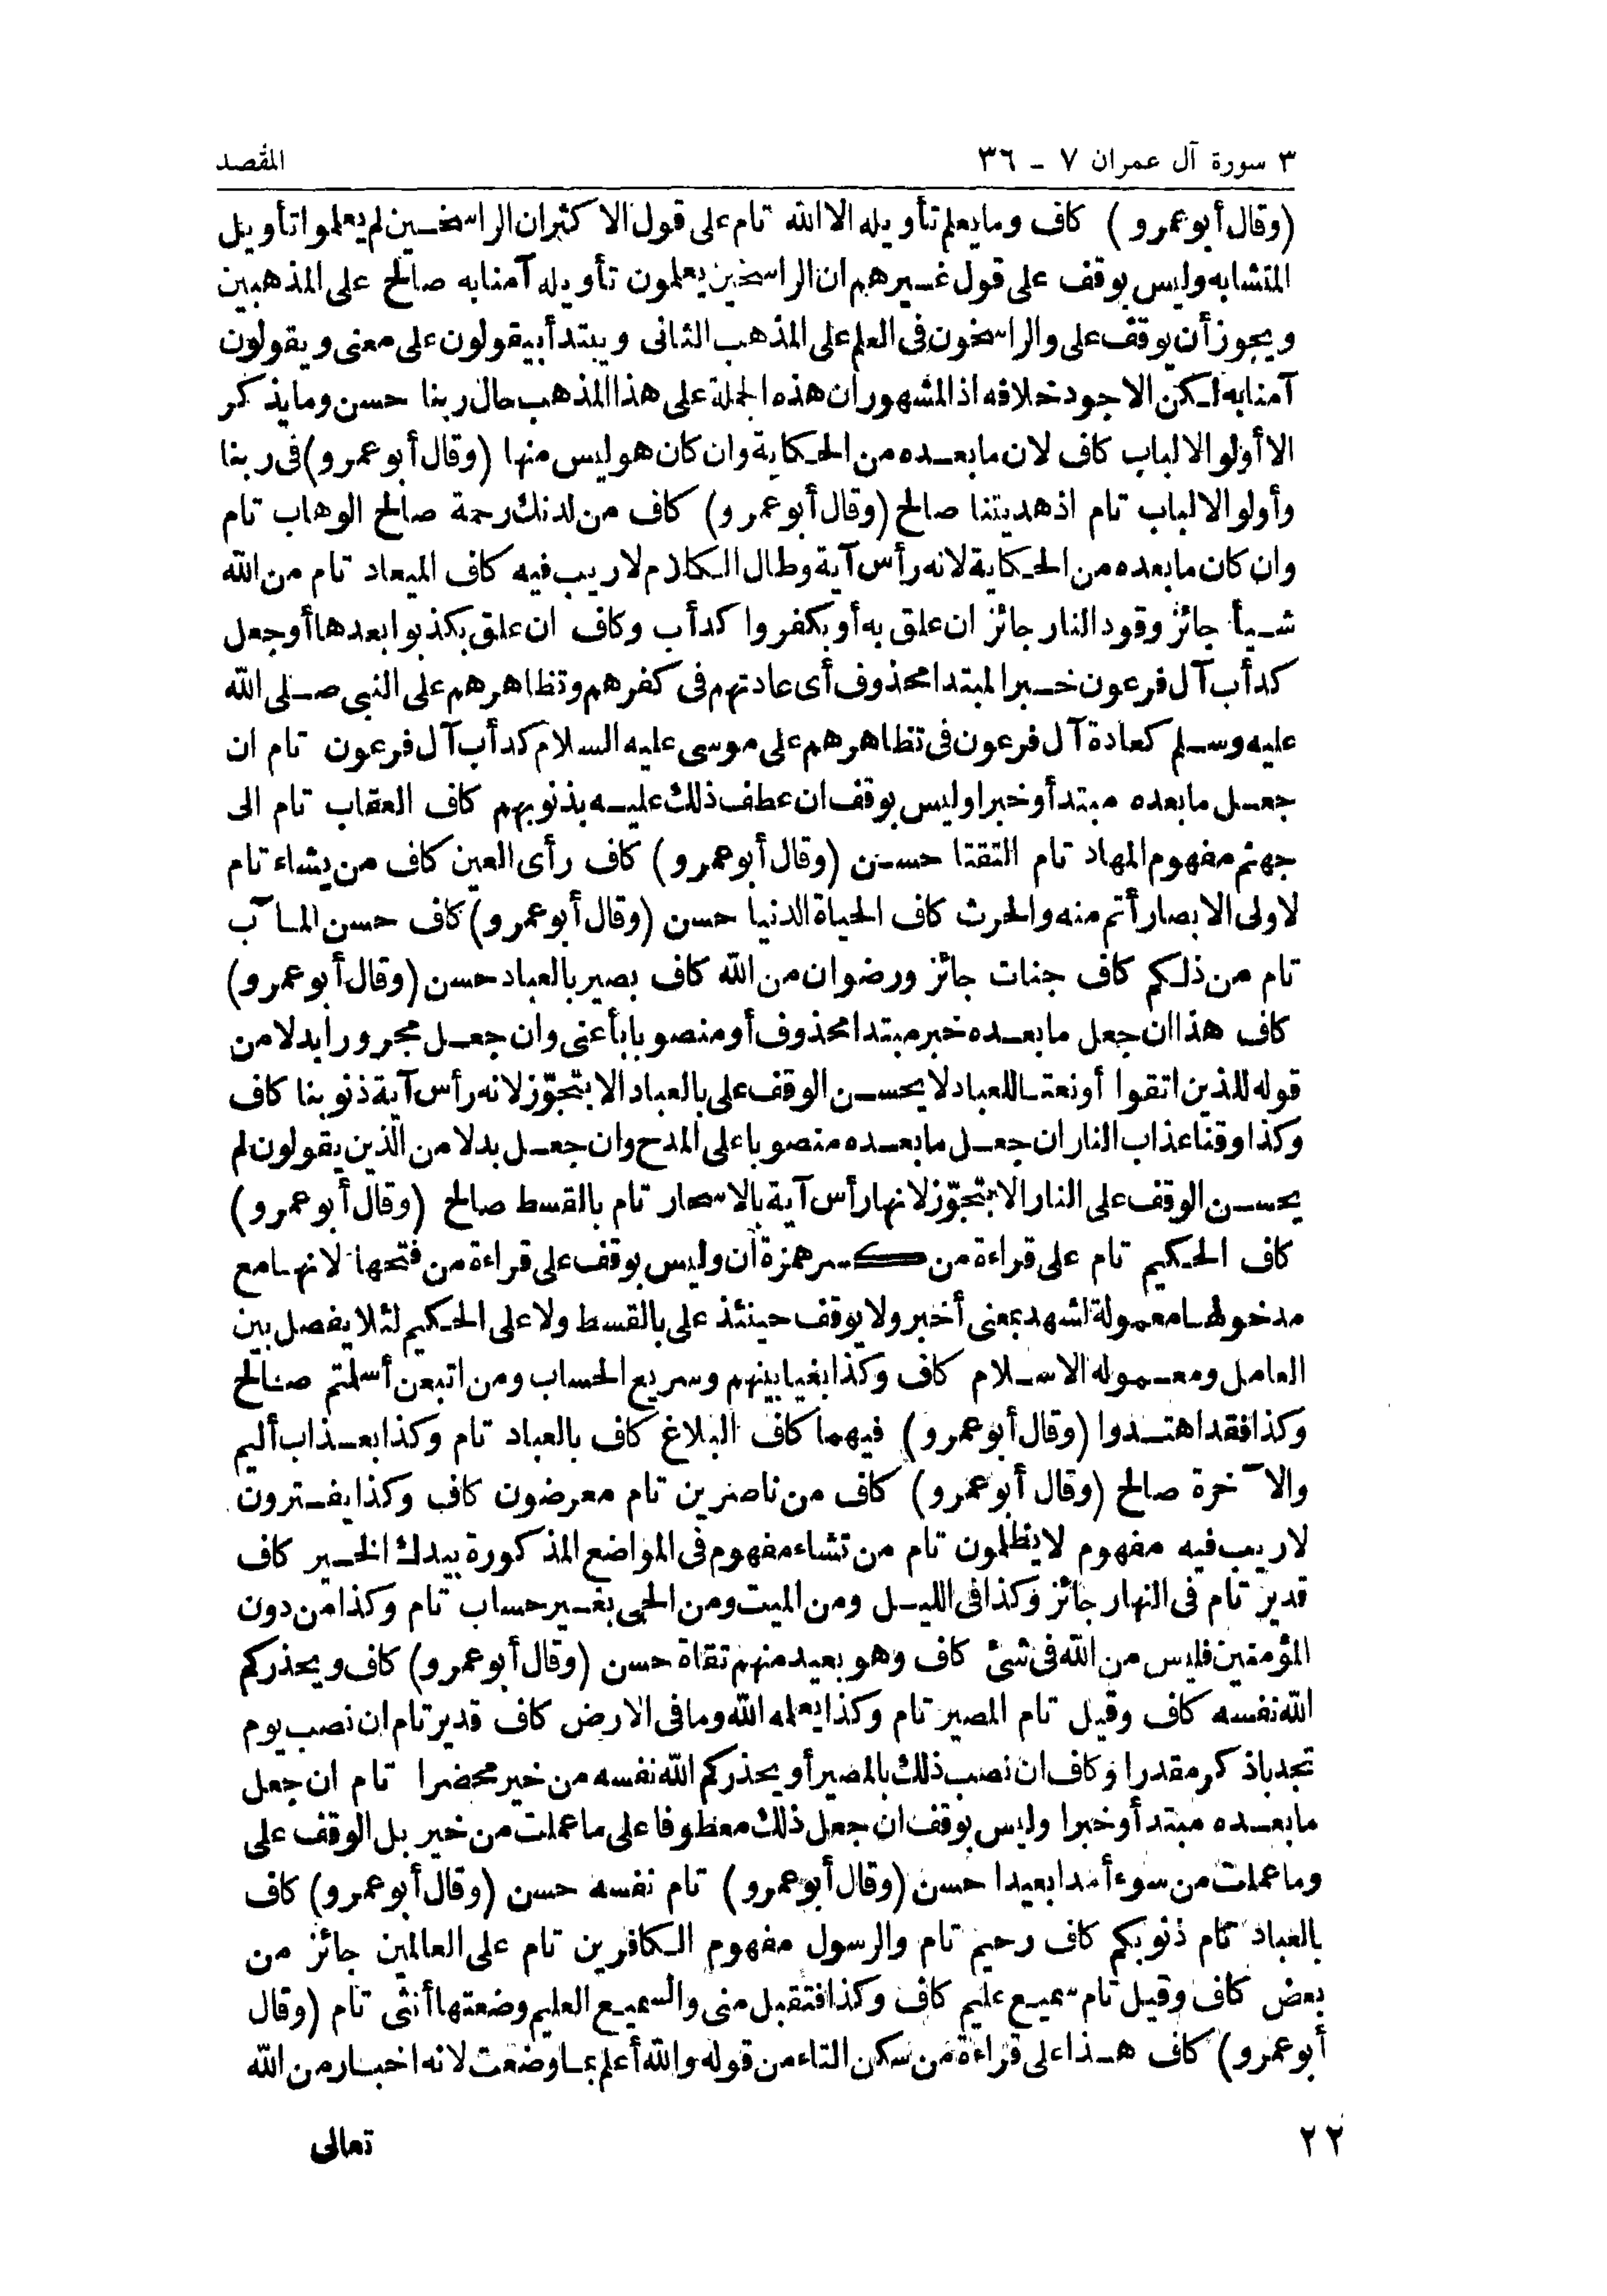 ٣ سورة آل عمران ٧ ـ ٣٦
المقصد
(وقال أبو عمرو) كاف وما يعلم تأويله الا الله تام على قول الاكثران الراسخين لم يعلموا تأويل
المتشابه وليس بوقف على قول غيرهم ان الراسخين يعلمون تأويله آمنا به صالح على المذهبين
ويجوز أن يوقف على والراسخون في العلم على المذهب الثانى ويبتدأ بيقولون على معنى ويقولون
آمنا به لكن الاجود خلافه اذ المشهور ان هذه الجملة على هذا المذهب حال ربنا حسن وما يذكر
الا أولو الالباب كاف لان ما بعده من الحكاية وان كان هو ليس منها (وقال أبو عمرو) فى ربنا
وأولو الالباب تام اذ هديتنا صالح (وقال أبو عمرو) كاف من لدنك رحمة صالح الوهاب تام
وان كان ما بعده من الحكاية لانه رأس آية وطال الكلام لا ريب فيه كاف الميعاد تام من الله
شيأ جائز وقود النار جائز ان علق به أو بكفروا كدأب وكاف ان علق بكذبوا بعدها أو جعل
كدأب آل فرعون خبرا لمبتدا محذوف أى عادتهم فى كفرهم وتظاهرهم على النبى صلى الله
عليه وسلم كعادة آل فرعون فى تظاهرهم على موسى عليه السلام كدأب آل فرعون تام ان
جعل ما بعده مبتدأ وخبرا وليس بوقف ان عطف ذلك عليه بذنوبهم كاف العقاب تام الى
جهنم مفهوم المهاد تام التقتا حسن (وقال أبو عمرو) كاف رأى العين كاف من يشاء تام
لاولى الابصار أتم منه والحرث كاف الحياة الدنيا حسن (وقال أبو عمرو) كاف حسن المآب
تام من ذلكم كاف جنات جائز ورضوان من الله كاف بصير بالعباد حسن (وقال أبو عمرو)
كاف هذا ان جعل ما بعده خبر مبتدا محذوف أو منصوبا بأعنى وان جعل مجرورا بدلا من
قوله للذين اتقوا أو نعتا للعباد لا يحسن الوقف على بالعباد الا بتجوّز لانه رأس آية ذنوبنا كاف
وكذا وقنا عذاب النار ان جعل ما بعده منصوبا على المدح وان جعل بدلا من الذين يقولون لم
يحسن الوقف على النار الا بتجوّز لانها رأس آية بالاسحار تام بالقسط صالح (وقال أبو عمرو)
كاف الحكيم تام على قراءة من كسر همزة ان وليس بوقف على قراءة من فتحها لانها مع
مدخولها معمولة لشهد بمعنى أخبر ولا يوقف حينئذ على بالقسط ولا على الحكيم لئلا يفصل بين
العامل ومعموله الاسلام كاف وكذا بغيا بينهم وسريع الحساب ومن اتبعن أسلمتم صالح
وكذا فقد اهتدوا (وقال أبو عمرو) فيهما كاف البلاغ كاف بالعباد تام وكذا بعذاب أليم
والآخرة صالح (وقال أبو عمرو) كاف من ناصرين تام معرضون كاف وكذا يفترون
لا ريب فيه مفهوم لا يظلمون تام من تشاء مفهوم فى المواضع المذكورة بيدك الخير كاف
قدير تام فى النهار جائز وكذا فى الليل ومن الميت ومن الحى بغير حساب تام وكذا من دون
المؤمنين فليس من الله فى شئ كاف وهو بعيد منهم تقاة حسن (وقال أبو عمرو) كاف ويحذركم
الله نفسه كاف وقيل تام المصير تام وكذا يعلمه الله وما فى الارض كاف قدير تام ان نصب يوم
تجد باذكر مقدرا وكاف ان نصب ذلك بالمصير أو يحذركم الله نفسه من خير محضرا تام ان جعل
ما بعده مبتدأ وخبرا وليس بوقف ان جعل ذلك معطوفا على ما عملت من خير بل الوقف على
وما عملت من سوء أمدا بعيدا حسن (وقال أبو عمرو) تام نفسه حسن (وقال أبو عمرو) كاف
بالعباد تام ذنوبكم كاف رحيم تام والرسول مفهوم الكافرين تام على العالمين جائز من
بعض كاف وقيل تام سميع عليم كاف وكذا فتقبل منى والسميع العليم وضعتها أنثى تام (وقال
أبو عمرو) كاف هذا على قراءة من سكن التاء من قوله والله أعلم بما وضعت لانه اخبار من الله
تعالى
٢٢